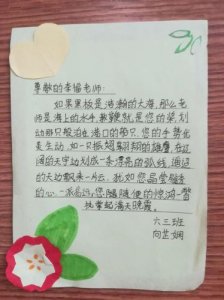 尊敬的李婧老师:
如果黑板是浩瀚的大海,那么老
师是海上的水手,教鞭就是您的桨划
动那只船泊在港口的船只,您的手势优
美生动,如一只振翅翱翔的雄鹰,在辽
阔的天宇划成一条漂亮的弧线,遥远
的天边飘来一片云,犹如您晶莹
的心,一派高远,您随随便便的惊鸿一瞥
就掌起满天晚霞。
六三班
向芷娴